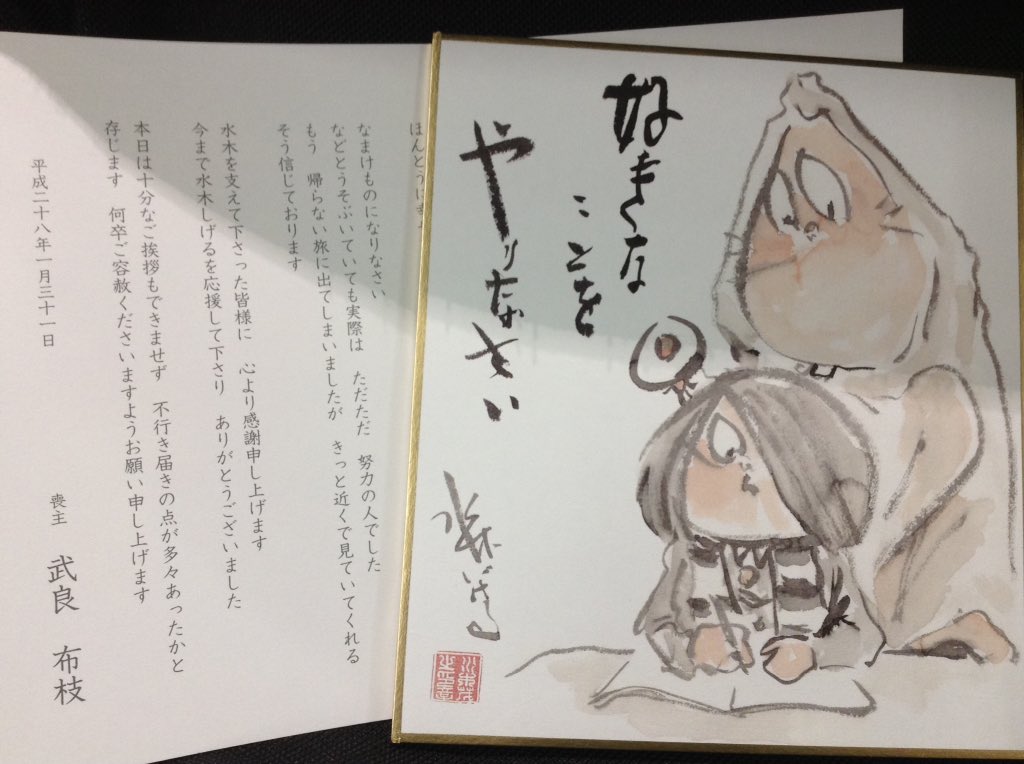 なまけものになりなさい
などとうそぶいていても実際は　ただただ　努力の人でした
もう　帰らない旅に出てしまいましたが　きっと近くで見ていてくれる
そう信じております
水木を支えて下さった皆様に　心より感謝申し上げます
今まで水木しげるを応援して下さり　ありがとうございました
本日は十分なご挨拶もできませず　不行き届きの点が多々あったかと
存じます　何卒ご容赦くださいますようお願い申し上げます
平成二十八年一月三十一日
喪主　武良　布枝
好きな
ことを
やりなさい
水木しげる